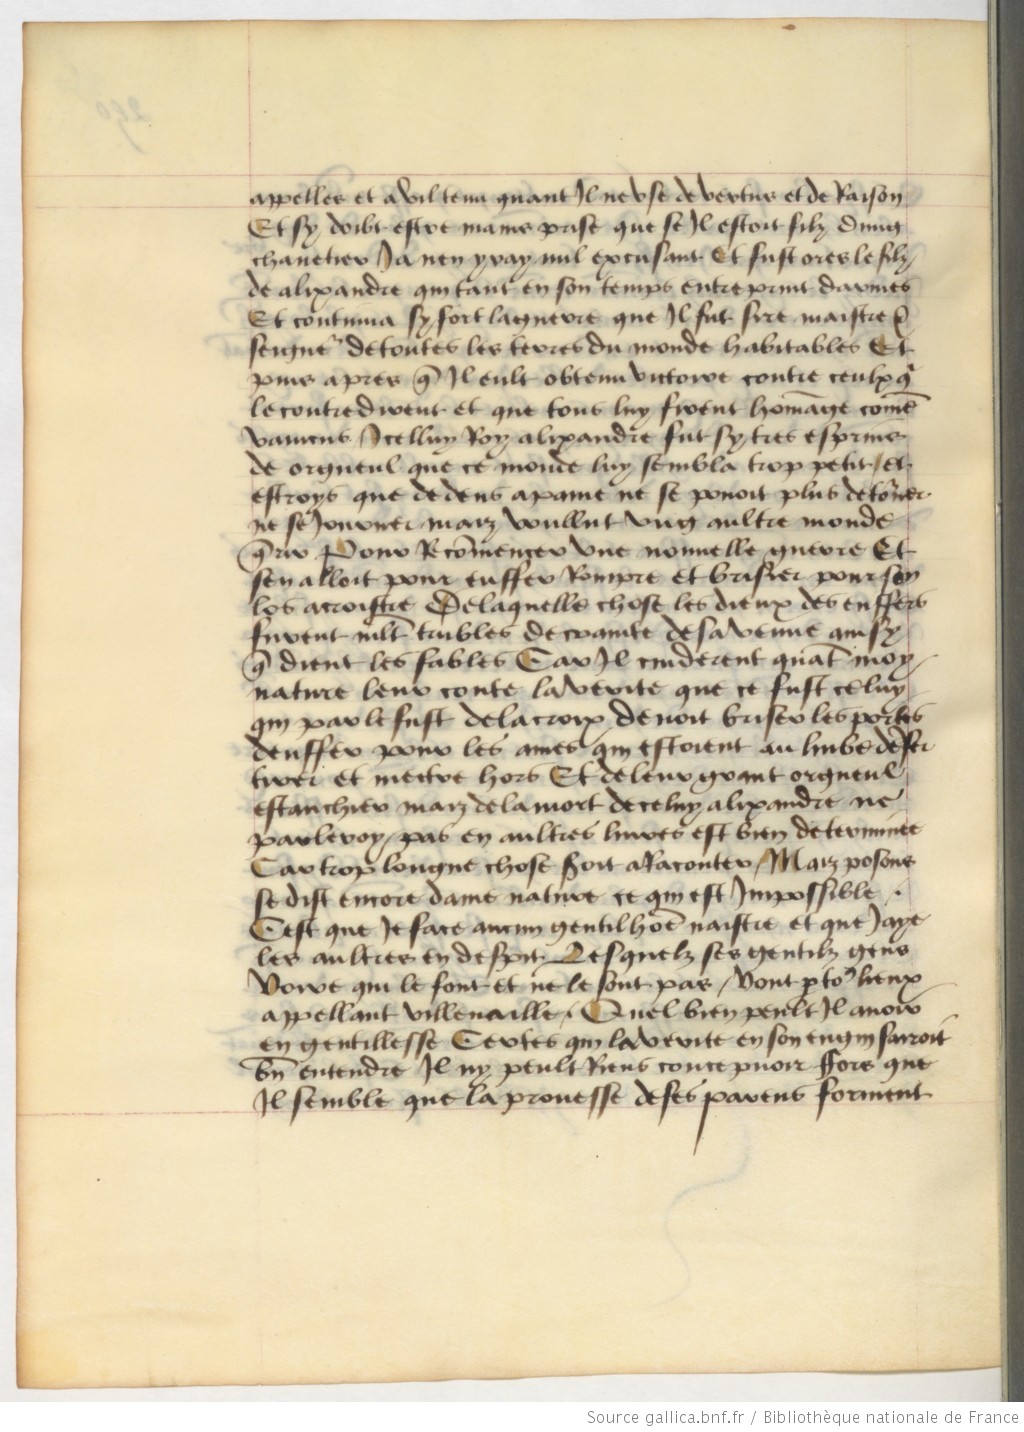 appelles et a vil tenu quant Il ne vse de vertus et de Raison
Et sy doibt estre mains prise que se Il estoit filz dung
chauetier Ja nen yray nul excusant Et fust ores le filz
de alixandre qui tant en son temps entreprint darmes
Et continua sy fort la guerre que Il fut sire maistre &
seigneʳ de toutes les terres du monde habitables Et
puis apres q̄ Il eult obtenu victoire contre ceulx q̄
le contredirent et que tous luy firent hom̄age com̄e
vaincus Icelluy Roy alixandre fut sy tres esprins
de orgueul que ce monde luy sembla trop petit / et
estroys que dedens a paine ne se pouoit plus deto͛ner
ne seJourner maiz voullut vng aultre monde
q̄rir Pour Recōmencer vne nouuelle guerre Et
sen alloit pour enffer Rompre et brisier pour son
los acroistre De laquelle chose les dieux des enffers
furent mlt̄ troubles de crainte de sa venue ainsy
q̄ dient les fables Car Il cuiderent quāt moy
nature leur conte la verite que ce fust celuy
qui par le fust de la croix deuoit briser les portes
denffer pour les ames qui estoient au limbe denfer
tirer et mectre hors Et de leur grant orgueul
estanchier maiz de la mort de celuy alixandre ne
parleroy / pas en aultres liures est bien determinee
Car trop longue chose seroit a Raconter / Maiz posons
se dist encore dame nature ce qui est Impossible .
Cest que Je face aucun gentil hōe naistre et que Jaye
les aultres en despit Lesquelz ses gentilz gens
Voire qui le sont et ne le sont pas / vont p to⁹ lieux
appellant villenaille . Quel bien peult Il auoir
en gentillesse Certes qui la verite en son engin sarroit
bn̄ entendre Il ny peult Riens conceuoir ffors que
Il semble que la prouesse de ses parens forment
Source gallica.bnf.fr / Bibliothèque nationale de France